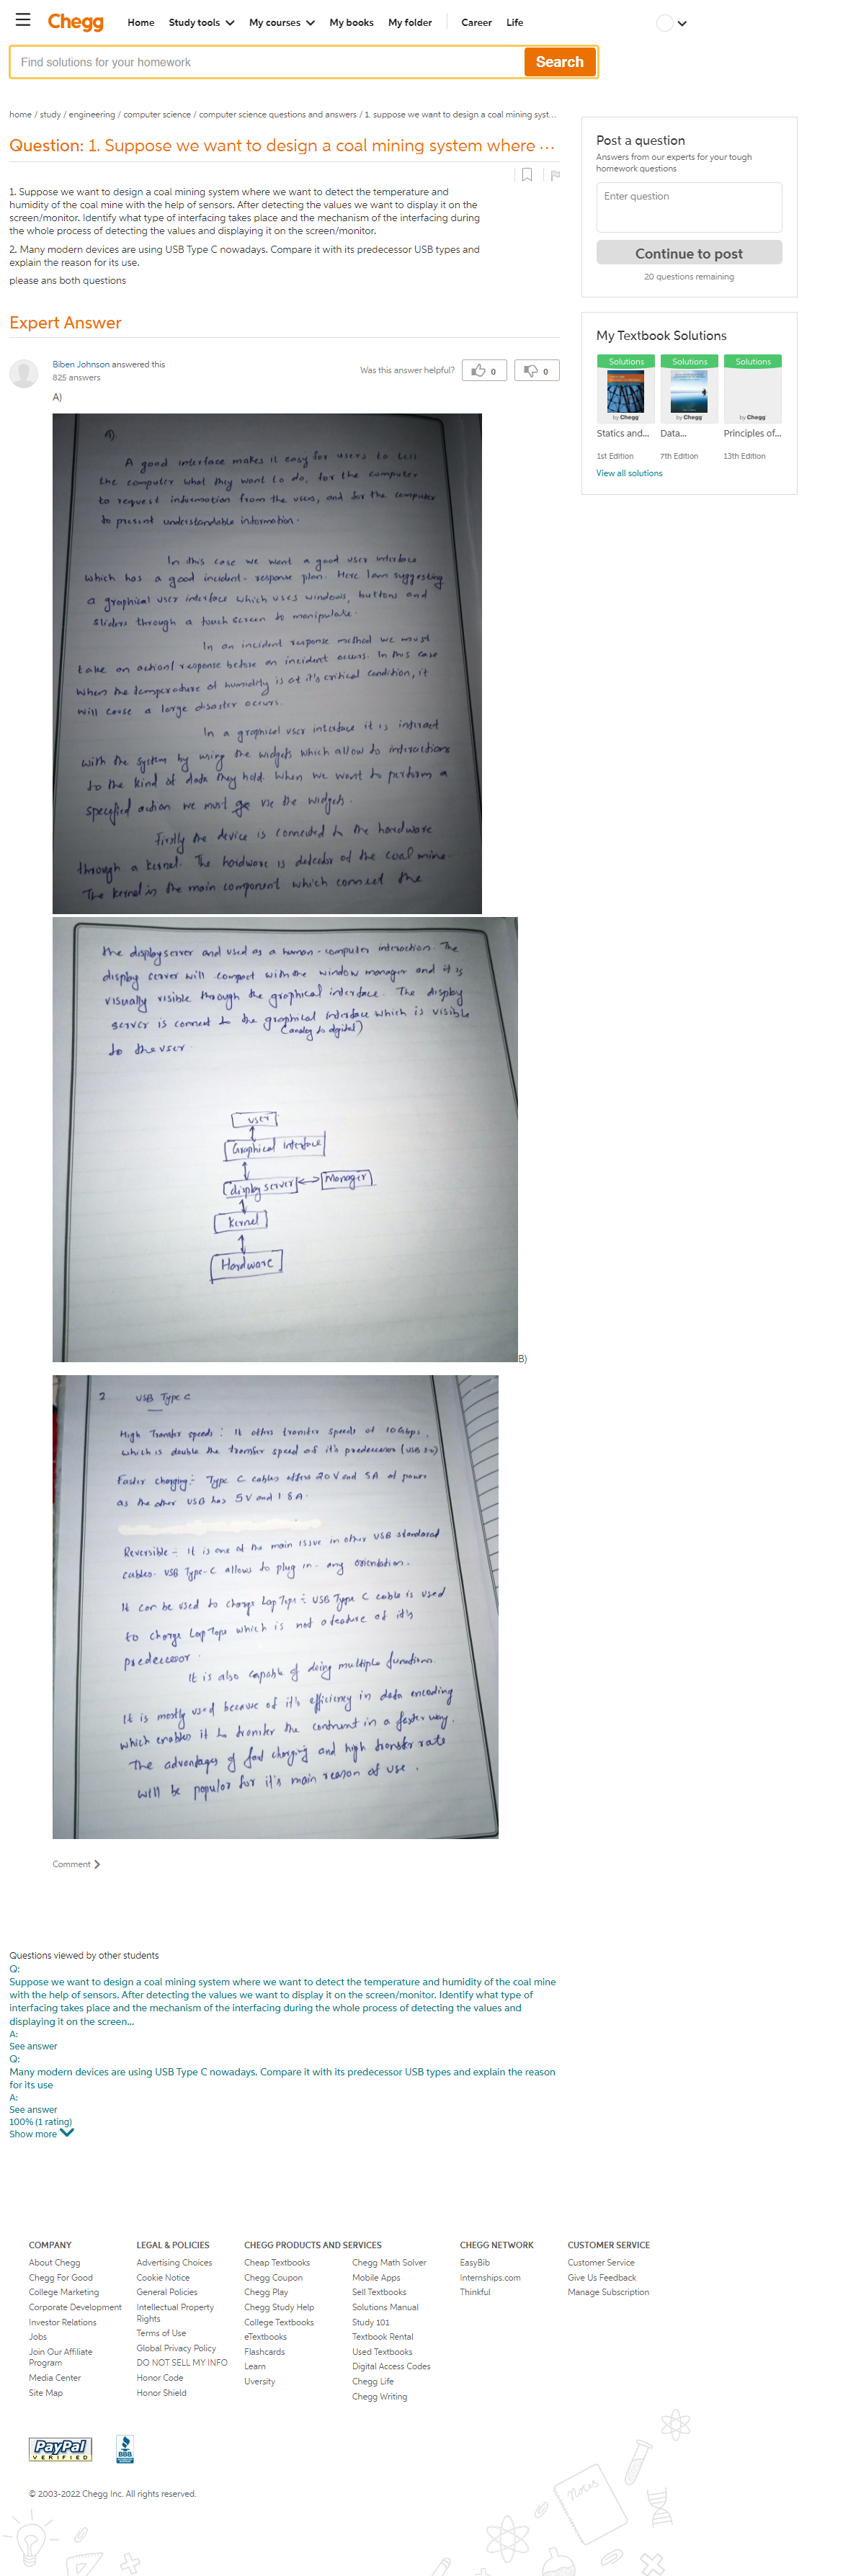 Chegg
Home Study tools My courses My books My folder Career Life
Find solutions for your homework
Search
home / study / engineering / computer science / computer science questions and answers / 1. suppose we want to design a coal mining syst...
Question: 1. Suppose we want to design a coal mining system where ...
1. Suppose we want to design a coal mining system where we want to detect the temperature and
humidity of the coal mine with the help of sensors. After detecting the values we want to display it on the
screen/monitor. Identify what type of interfacing takes place and the mechanism of the interfacing during
the whole process of detecting the values and displaying it on the screen/monitor.
2. Many modern devices are using USB Type C nowadays. Compare it with its predecessor USB types and
explain the reason for its use.
please ans both questions
Expert Answer
Biben Johnson answered this
825 answers
Was this answer helpful? 0 0
A)
A).
A good interface makes it easy for users to tell
the computer what they want to do, for the computer
to request information from the users, and for the computer
to present understandable information.
In this case we want a good user interface
which has a good incident-response plan. Here Iam suggesting
a graphical user interface which uses windows, buttons and
sliders through a touch screen to manipulate.
In an incident response method we must
take an action/response before an incident occurs. In this case
when the temperature of humidity is at it's critical condition, it
will cause a large disaster occurs.
In a graphical user interface it is interact
with the system by using the widgets which allow to interactions
to the kind of data they hold. When we want to perform a
specified action we must use the widgets.
Firstly the device is connected to the hardware
through a kernel. The hardware is detector of the coal mine.
The kernel is the main component which connect the
the display server and used as a human-computer interaction. The
display server will compact with the window manager and it is
visually visible through the graphical interface. The display
server is connect to the graphical interface which is visible
(analog to digital)
to the user.
user
Graphical interface
display server
Manager
kernel
Hardware
B)
2 USB Type C
High Transfer speeds: It offers transfer speeds of 10Gbps,
which is double the transfer speed of it's predecessor (USB 3.0)
Faster charging:- Type C cables offers 20V and 5A of power
as the other USB has 5V and 1.8A.
Reversible:- It is one of the main issue in other USB standard
cables. USB Type-C allows to plug in any orientation.
It can be used to charge Lap Tops:- USB Type C cable is used
to charge Lap Tops which is not a feature of it's
predecessor.
It is also capable of doing multiple functions.
It is mostly used because of it's efficiency in data encoding
which enables it to transfer the continent in a faster way.
The advantages of fast charging and high transfer rate
will be popular for it's main reason of use.
Comment
Questions viewed by other students
Q:
Suppose we want to design a coal mining system where we want to detect the temperature and humidity of the coal mine
with the help of sensors. After detecting the values we want to display it on the screen/monitor. Identify what type of
interfacing takes place and the mechanism of the interfacing during the whole process of detecting the values and
displaying it on the screen...
A:
See answer
Q:
Many modern devices are using USB Type C nowadays. Compare it with its predecessor USB types and explain the reason
for its use
A:
See answer
100% (1 rating)
Show more
Post a question
Answers from our experts for your tough
homework questions
Enter question
Continue to post
20 questions remaining
My Textbook Solutions
Solutions Solutions Solutions
by Chegg by Chegg by Chegg
Statics and... Data... Principles of...
1st Edition 7th Edition 13th Edition
View all solutions
COMPANY
About Chegg
Chegg For Good
College Marketing
Corporate Development
Investor Relations
Jobs
Join Our Affiliate
Program
Media Center
Site Map
LEGAL & POLICIES
Advertising Choices
Cookie Notice
General Policies
Intellectual Property
Rights
Terms of Use
Global Privacy Policy
DO NOT SELL MY INFO
Honor Code
Honor Shield
CHEGG PRODUCTS AND SERVICES
Cheap Textbooks
Chegg Coupon
Chegg Play
Chegg Study Help
College Textbooks
eTextbooks
Flashcards
Learn
Uversity
Chegg Math Solver
Mobile Apps
Sell Textbooks
Solutions Manual
Study 101
Textbook Rental
Used Textbooks
Digital Access Codes
Chegg Life
Chegg Writing
CHEGG NETWORK
EasyBib
Internships.com
Thinkful
CUSTOMER SERVICE
Customer Service
Give Us Feedback
Manage Subscription
PayPal
VERIFIED
BBB
© 2003-2022 Chegg Inc. All rights reserved.
Notes